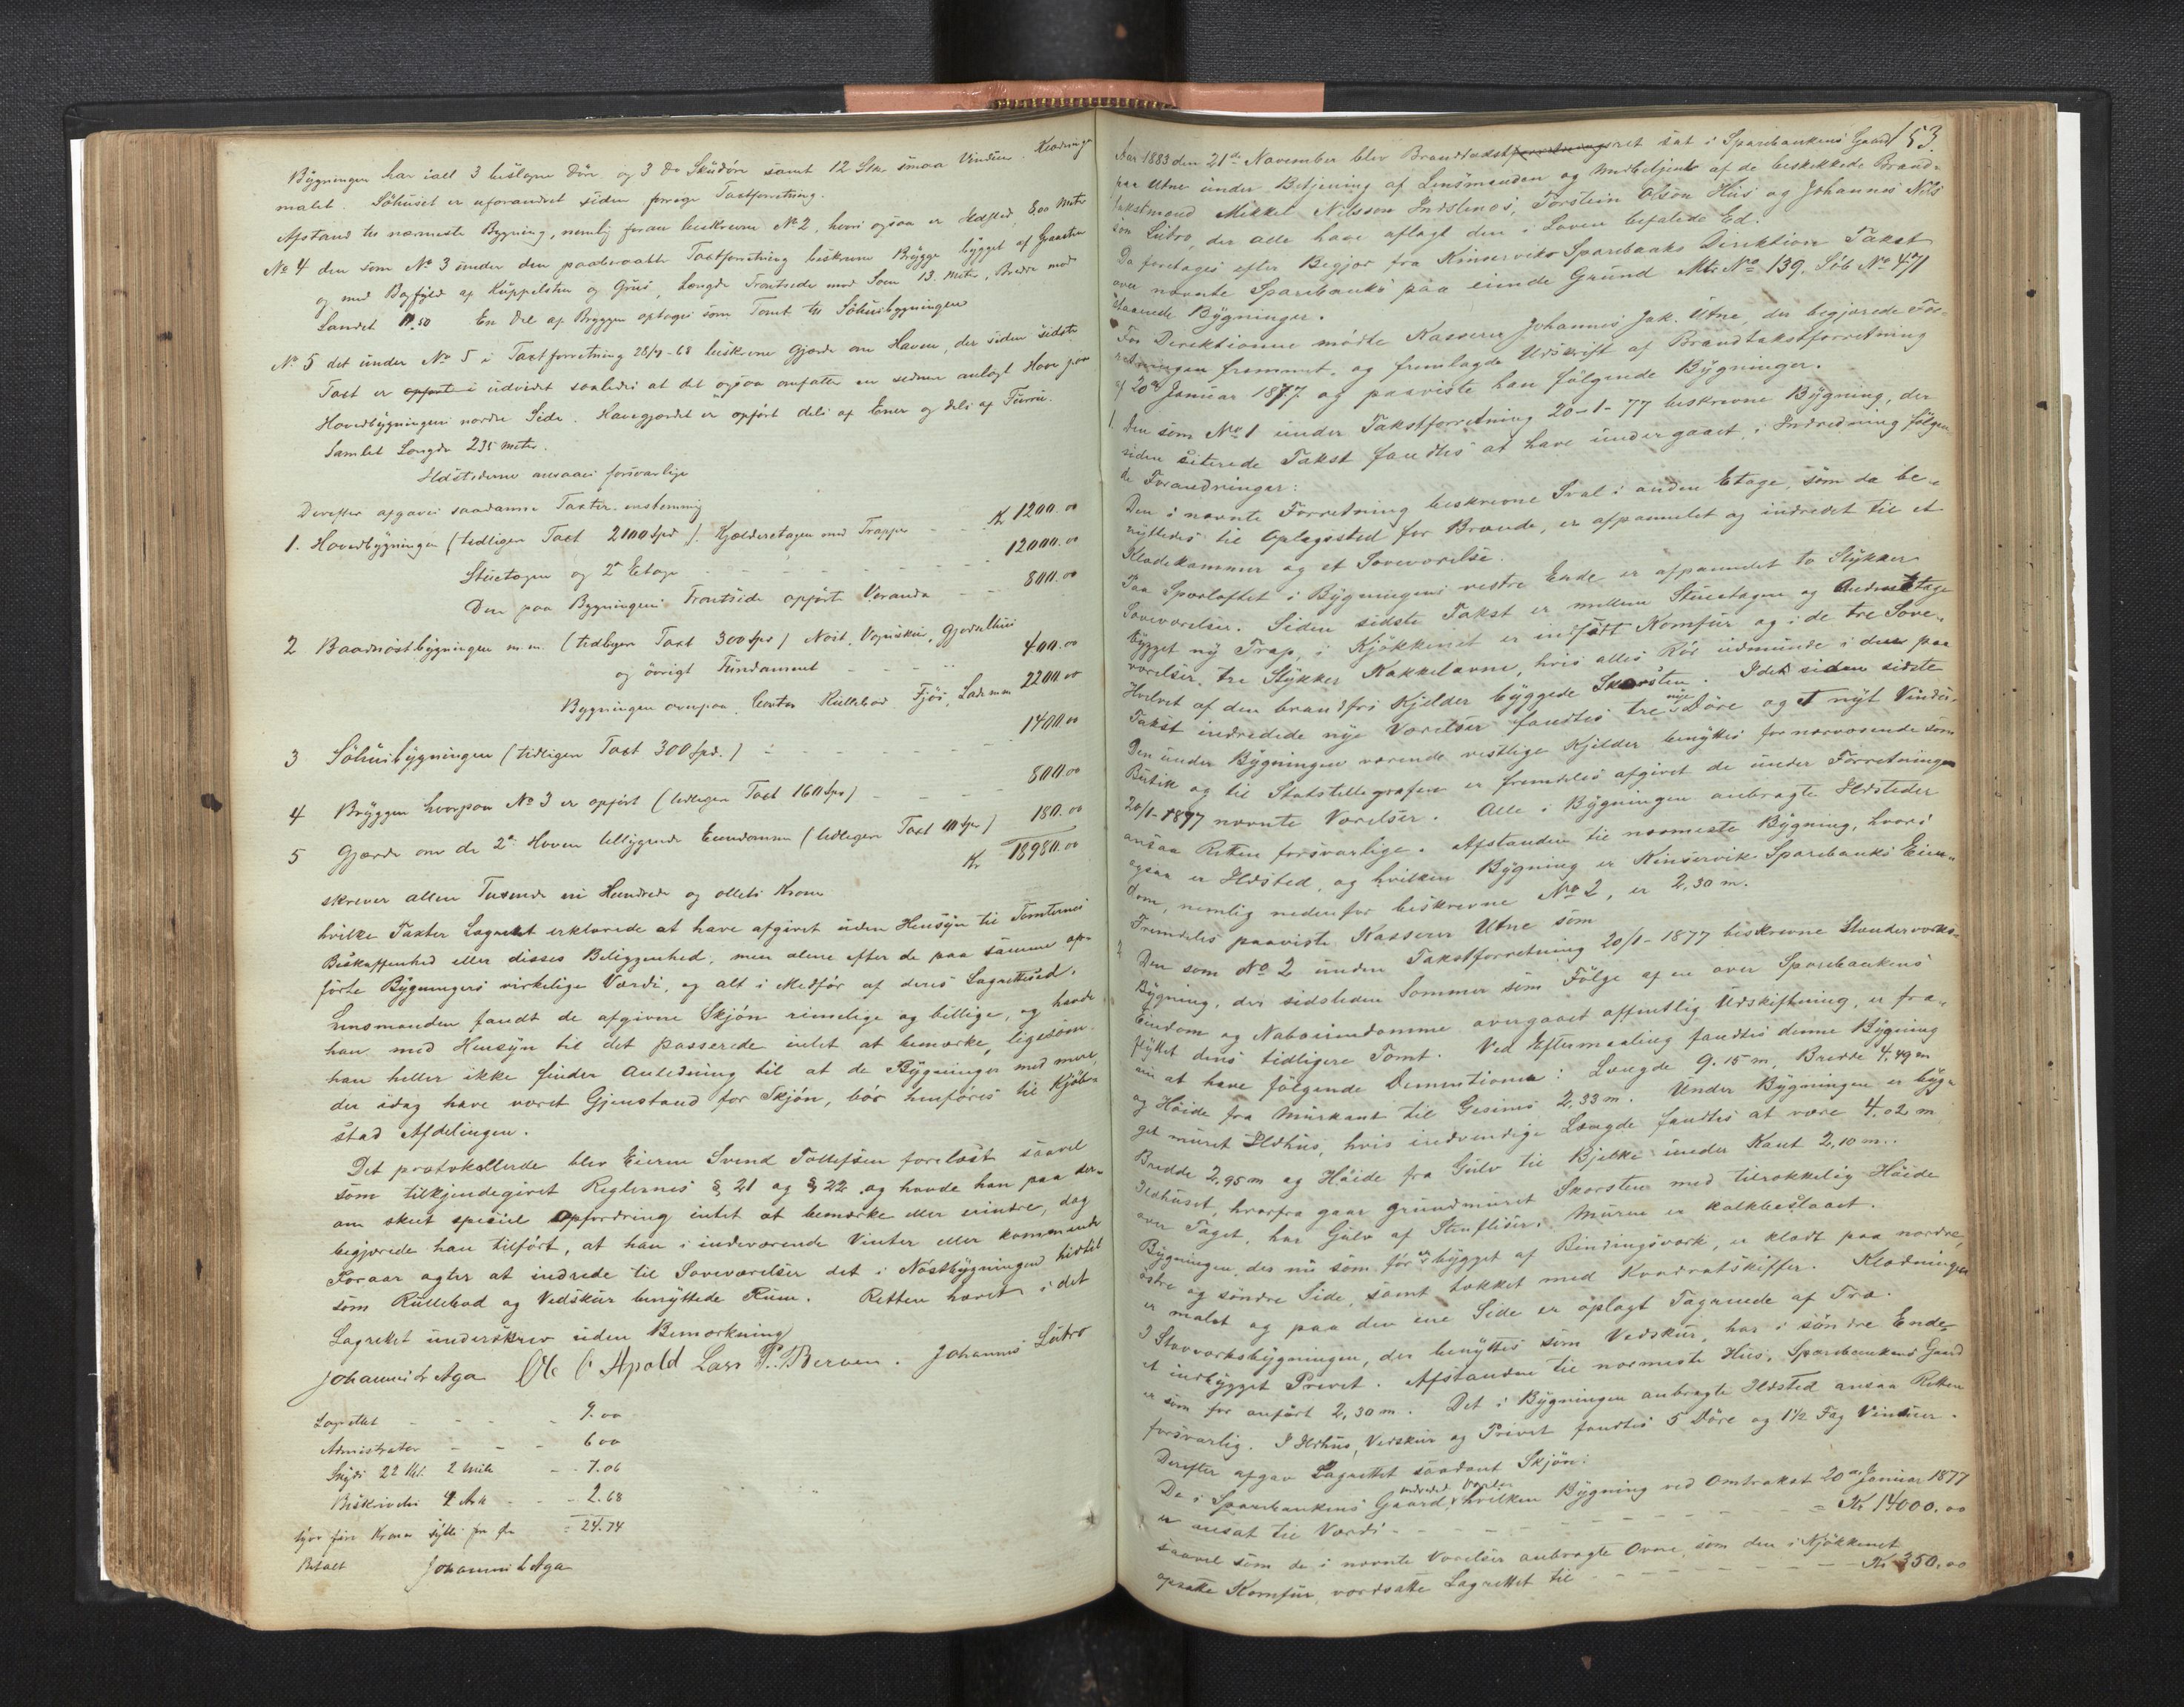 Bygningen har ialt 3 beslagne Döre og 3 do Skudöre samt 12 Stk. smaa Vinduer. Klædningen
malet. Söhuset er uforandret siden forrige Taxtforretning.
Afstand til nærmeste Bygning, nemlig foran beskrevne No 2, hvori ogsaa er Ildsted, 8,00 Meter
No 4 den som No 3 under den paaberaabte Taxtforretning beskrevne Brygge bygget af Graasten
og med Bagfyld af Kuppelsten og Grus, Længde Frontside mod Söen 13. Meter, Bredre mod
Landet 11.50 En Del af Bryggen optages som Tomt til Söhusbygningen
No 5 det under No 5 i Taxtforretning 28/9-68 beskrevne Gjærde om Haven, der siden sidste
Taxt er opfört i udvidet saaledes at det ogsaa omfatter en senere anlagt Have paa
Hovedbygningens nordre Side. Havegjerdet er opfört dels af Ener og dels af Furru.
Samlet Længde 235 Meter.
Ildstederne ansaaes forsvarlige
Derefter afgaves saadanne Taxter enstemmig
1. Hovedbygningen (tidligere Taxt 2100 Spd). Kjælderetagen med Trapper - - Kr 1200.00
Stuetagen og 2n Etage - - - - - - 12000.00
Den paa Bygningens Frontside opförte Veranda - - 800.00
2 Baadnöstbygningen m.m. (tidligere Taxt 300 Spd) Nöst, Vognskur, Gjødselhus
og övrigt Fundament - - - - 400.00
Bygningen ovenpaa, Rullebod Fjös, Lade m.m 2200.00
3 Söhusbygningen (tidligere Taxt 300 Spd.) - - - - - 1400.00
4 Bryggen hvorpaa No 3 er opfört (tidligere Taxt 160 Spd) - - - - 800.00
5 Gjærde om de 2de Haven tilliggende Eiendomme (tidligere Taxt Spd) 180.00
Kr 18980.00
skriver atten Tusende ni Hundrede og otteti Kroner
hvilke Taxter Lagrettet erklærede at have afgivet uden Hensyn til Tomternes
Beskaffenhed eller disses Beliggenhed, men alene efter de paa samme op-
förte Bygningers virkelige Værdi, og alt i Medför af deres Lagrettesed.
Lensmanden fandt de afgivne Skjön rimelige og billige, og havde
han med Hensyn til det passerede intet at bemærke, ligesom
han heller ikke finder Anledning til at de Bygninger med mere,
der idag have været Gjenstand for Skjön, bör henföres til Kjöb-
stad Afdelingen.
Det protokollerde blev Eieren Svend Tollefsen forelæst saavel
som tilkjendegivet Reglernes § 21 og § 22 og havde han paa der-
om skeet speciel Opfordring intet at bemærke eller erindre, dog
begjærede han tilfört, at han i indeværende Vinter eller kommende
Foraar agter at indrede til Soveværelser det i Nöstbygningen hidtil
som Rullebod og Vedskur benyttede Rum. Retten hævet i det
Lagrettet underskrev uden Bemærkning
Johannes L Aga Ole O Apold Lars P. Berven. Johannes Lutro
Lagrettet - - - - 9.00
Administrator - - - 6 00
Skyds 22 Kil. 2 Mile - - 7.06
Beskrivelse 4 Ark - - - 2.68
= 24.74
Betalt Johannes L Aga
153.
Aar 1883 den 21de November blev Brandtakstforretningsret sat i Sparebankens Gaard
paa Utne under Betjening af Lensmanden og Medbetjent af de beskikkede Brand-
takstmænd Mikkel Nilsson Indstenes, Torstein Olson Hus og Johannes Nils
son Lutro, der alle have aflagt den i Loven befalede Ed.
Da foretages efter Begjær fra Kinserviks Sparebanks Direktion Takst
over nævnte Sparebanks paa eiende Grund Mtr No 139. Löb No 471
staaende Bygninger.
For Direktionen mödte Kasserer Johannes Jak. Utne, der begjærede For-
retningen fremmet, og fremlagde Udskrift af Brandtakstforretning
af 20de Januar 1877 og paaviste han fölgende Bygninger.
1. Den som No 1 under Takstforretning 20-1-77 beskrevne Bygning, der
siden siterede Takst fandtes at have undergaaet i Indredning fölgen
de Forandringer:
Den i nævnte Forretning beskrevne Sval i anden Etage, som da be-
nyttedes til Oplagssted for Brænde, er afpannelet og indredet til et
Klædekammer og et Soveværelse.
Paa Sperloftet i Bygningens vestre Ende er afpannelet to Stykker
Soveværelser. Siden sidste Takst er mellem Stuetagen og Anden Etage
bygget ny Trap, i Kjökkenet er indsatt Komfur og i de tre Sove-
værelser, tre Stykker Kakkelovne, hvis alles Rör udmunde i den paa
Hvelvet af den brandfri Kjelder byggede Skorsten. I det siden sidste
Takst indredede nye Værelser fandtes tre nye Döre og et nyt Vindu.
Den under Bygningen værende vestlige Kjelder benyttes for nærværende som
Butik og til Statstelegrafen er fremdeles afgivet de under Forretningen
20/1-1877 nævnte Værelser. Alle i Bygningen anbragte Ildsteder
ansaa Retten forsvarlige. Afstanden til nærmeste Bygning, hvori
ogsaa er Ildsted, og hvilken Bygning er Kinservik Sparebanks Eien-
dom, nemlig nedenfor beskrevne No 2, er 2,30 m.
Fremdeles paaviste Kasserer Utne som
2 Den som No 2 under Takstforretning 20/1-1877 beskrevne Stændervorks-
Bygning, der sidstleden Sommer som Fölge af en over Sparebankens
Eiendom og Naboeiendomme overgaaet offentlig Udskiftning, er fra-
flyttet dens tidligere Tomt. Ved Eftermaaling fandtes denne Bygning
nu at have fölgende Dementioner: Længde 9.15 m, Bredde 4,49 m
og Höide fra Murkant til Gesims 2,33 m. Under Bygningen er byg-
get muret Ildhus, hvis indvendige Længde fandtes at være 4.02 m
Bredde 2,95 m og Höide fra Gulv til Bjelke under Kant 2,10 m..
Ildhuset, hvorfra gaar grundmuret Skorsten med tilrækkelig Höide
over Taget, har Gulv af Stenfliser. Muren er kalkbeslaaet.
Bygningen, der nu som för er bygget af Bindingsverk, er klædt paa nordre,
östre og söndre Side, samt tækket med Kvadratskiffer. Klædningen
er malet og paa den ene Side er oplagt Tagrende af Træ.
I Stavverksbygningen, der benyttes som Vedskur, har i söndre Ende
et indbygget Privet. Afstanden til nærmeste Hus, Sparebankens Gaard
er som för anfört 2,30 m. Det i Bygningen anbragte Ildsted ansaa Retten
forsvarlig. I Ildhus, Vedskur og Privet fandtes 5 Döre og 1½ Fag Vinduer.
Derefter afgav Lagrettet saadant Skjön:
De i Sparebankens Gaard indredede Værelser, hvilken Bygning ved Omtakst 20de Januar 1877
er ansat til Værdi - - - - - - - = Kr 14000.00
saavel som de i nævnte Værelser anbragte Ovne, som den i Kjökkenet
opsatte Komfur, værdsatte Lagrettet til - - - - - - Kr 350.00